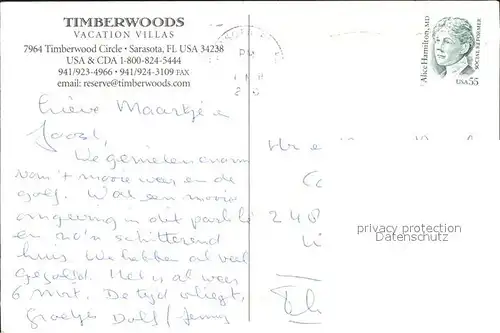 TIMBERWOODS
VACATION VILLAS
7964 Timberwood Circle • Sarasota, FL USA 34238
USA & CDA 1-800-824-5444
941/923-4966 • 941/924-3109 FAX
email: reserve@timberwoods.com
Lieve Maartje &
Joost,
We genieten enorm
van 't mooie weer en de
golf. Wat een mooie
omgeving in dit park
en zo'n schitterend
huis. We hebben al veel
gegolfd. Het is al weer
6 mrt. De tijd vliegt.
Groetjes Dolf /
Alice Hamilton, MD
SOCIAL REFORMER
USA 55
PM
248
privacy protection
Datenschutz